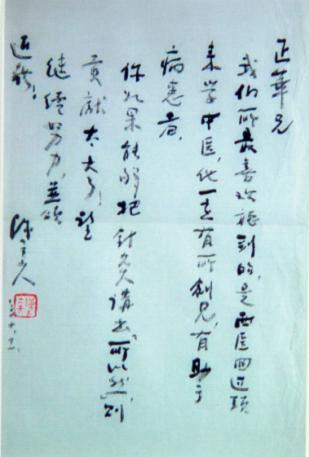 正華兄
我们所最喜欢听到的,是西医回过头
来学中医,他一定有所創見,有助于
病患者。
你如果能够把针灸講出"所以然",則
貢献太大了!望
继续努力,並頌
近祺!